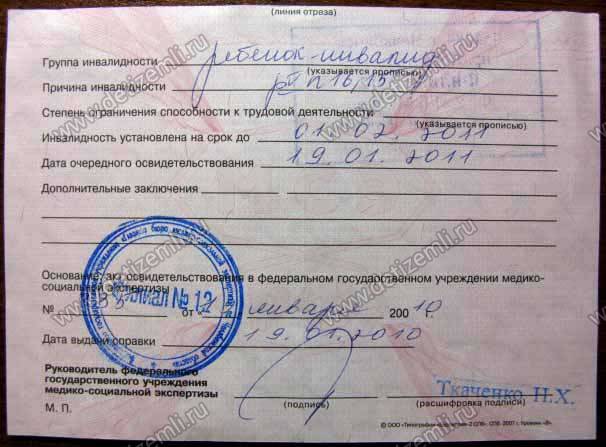 (линия отреза)
Группа инвалидности ребенок-инвалид
(указывается прописью)
Причина инвалидности
Степень ограничения способности к трудовой деятельности
(указывается прописью)
Инвалидность установлена на срок до 01.02.2011
Дата очередного освидетельствования 19.01.2011
Дополнительные заключения
Основание: акт освидетельствования в федеральном государственном учреждении медико-
социальной экспертизы
№ от января 200 10
Филиал № 12
Дата выдачи справки 19.01.2010
Руководитель федерального
государственного учреждения
медико-социальной экспертизы
Ткаченко Н.Х.
М. П.
(подпись)
(расшифровка подписи)
www.detizemli.ru